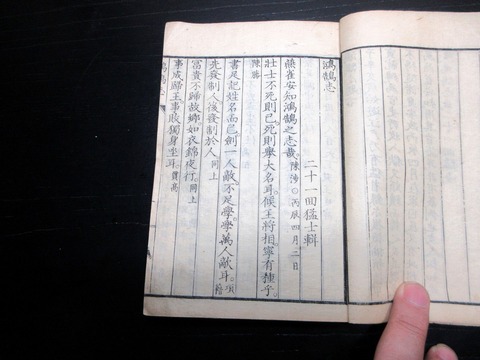 鴻鵠志
二十一回猛士輯
燕雀安知鴻鵠之志哉。陳涉〇丙辰四月二日
壯士不死則已。死則擧大名耳。侯王將相。寧有種乎。
陳勝
書足記姓名而已。劍一人敵。不足學。學萬人敵耳。項籍
先發制人後發制於人。同上
富貴不歸故鄉。如衣錦夜行。同上
事成歸王。事敗獨身坐耳。貫高